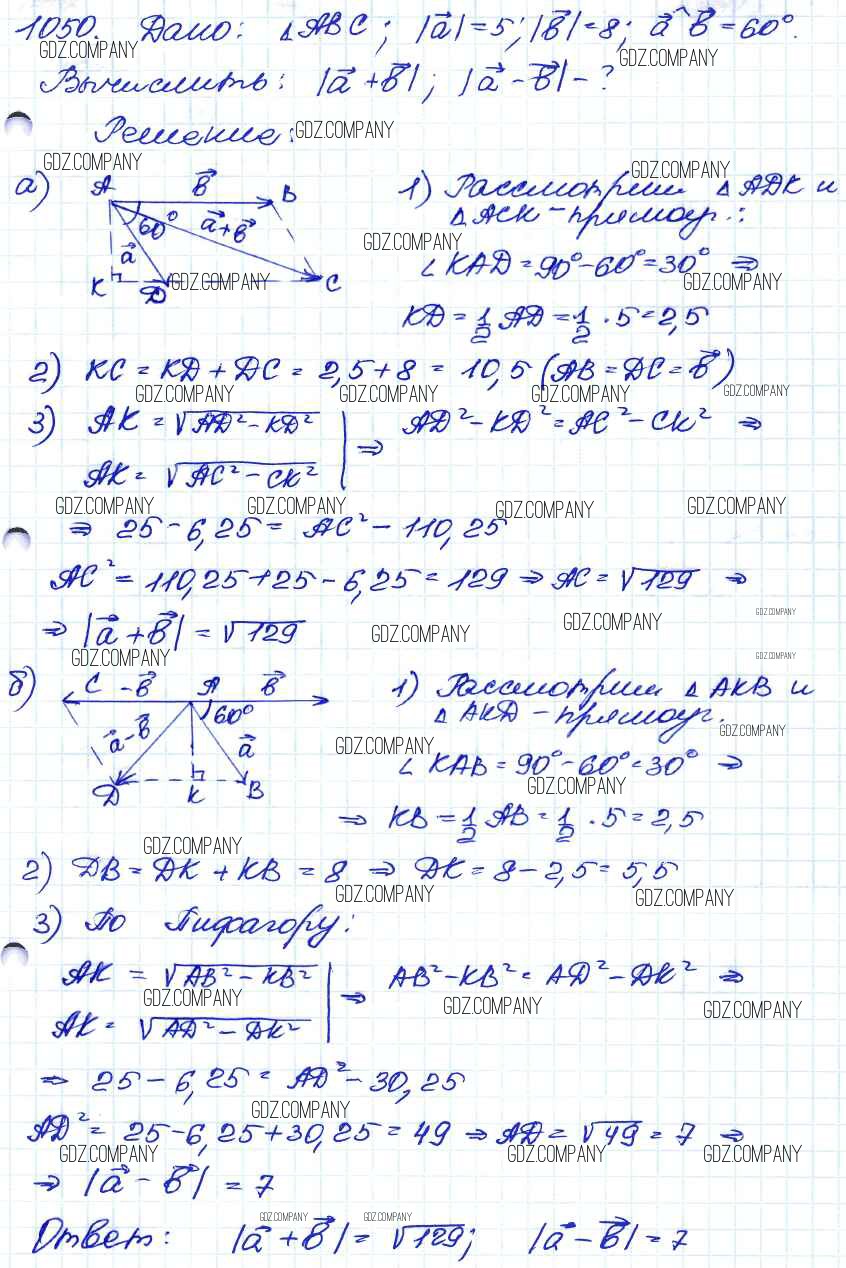 1050. Дано: △ABC; |a⃗|=5; |b⃗|=8; a⃗^b⃗=60°.
GDZ.COMPANY GDZ.COMPANY
Вычислить: |a⃗+b⃗|; |a⃗-b⃗|-?
Решение: GDZ.COMPANY
GDZ.COMPANY GDZ.COMPANY
а) A b⃗ B 1) Рассмотрим △ADK и
60° a⃗+b⃗ △ACK-прямоуг.:
GDZ.COMPANY
a⃗ ∠KAD=90°-60°=30° ⇒
K D C GDZ.COMPANY GDZ.COMPANY
KD=1/2 AD=1/2·5=2,5
2) KC=KD+DC=2,5+8=10,5(AB=DC=b⃗)
GDZ.COMPANY GDZ.COMPANY GDZ.COMPANY GDZ.COMPANY
3) AK=√AD²-KD² | ⇒ AD²-KD²=AC²-CK² ⇒
AK=√AC²-CK²
GDZ.COMPANY GDZ.COMPANY GDZ.COMPANY GDZ.COMPANY
⇒ 25-6,25=AC²-110,25
AC²=110,25+25-6,25=129 ⇒ AC=√129 ⇒
GDZ.COMPANY
⇒ |a⃗+b⃗|=√129 GDZ.COMPANY GDZ.COMPANY
GDZ.COMPANY GDZ.COMPANY
б) C -b⃗ A b⃗ 1) Рассмотрим △AKB и
60° △AKD-прямоуг.
GDZ.COMPANY
a⃗-b⃗ a⃗ GDZ.COMPANY
∠KAB=90°-60°=30° ⇒
D K B GDZ.COMPANY
⇒ KB=1/2 AB=1/2·5=2,5
GDZ.COMPANY
2) DB=DK+KB=8 ⇒ DK=8-2,5=5,5
GDZ.COMPANY GDZ.COMPANY
3) По Пифагору:
AK=√AB²-KB² | ⇒ AB²-KB²=AD²-DK² ⇒
GDZ.COMPANY GDZ.COMPANY GDZ.COMPANY
AK=√AD²-DK²
⇒ 25-6,25=AD²-30,25
GDZ.COMPANY
AD²=25-6,25+30,25=49 ⇒ AD=√49=7 ⇒
GDZ.COMPANY GDZ.COMPANY GDZ.COMPANY
⇒ |a⃗-b⃗|=7
GDZ.COMPANY GDZ.COMPANY
Ответ: |a⃗+b⃗|=√129; |a⃗-b⃗|=7